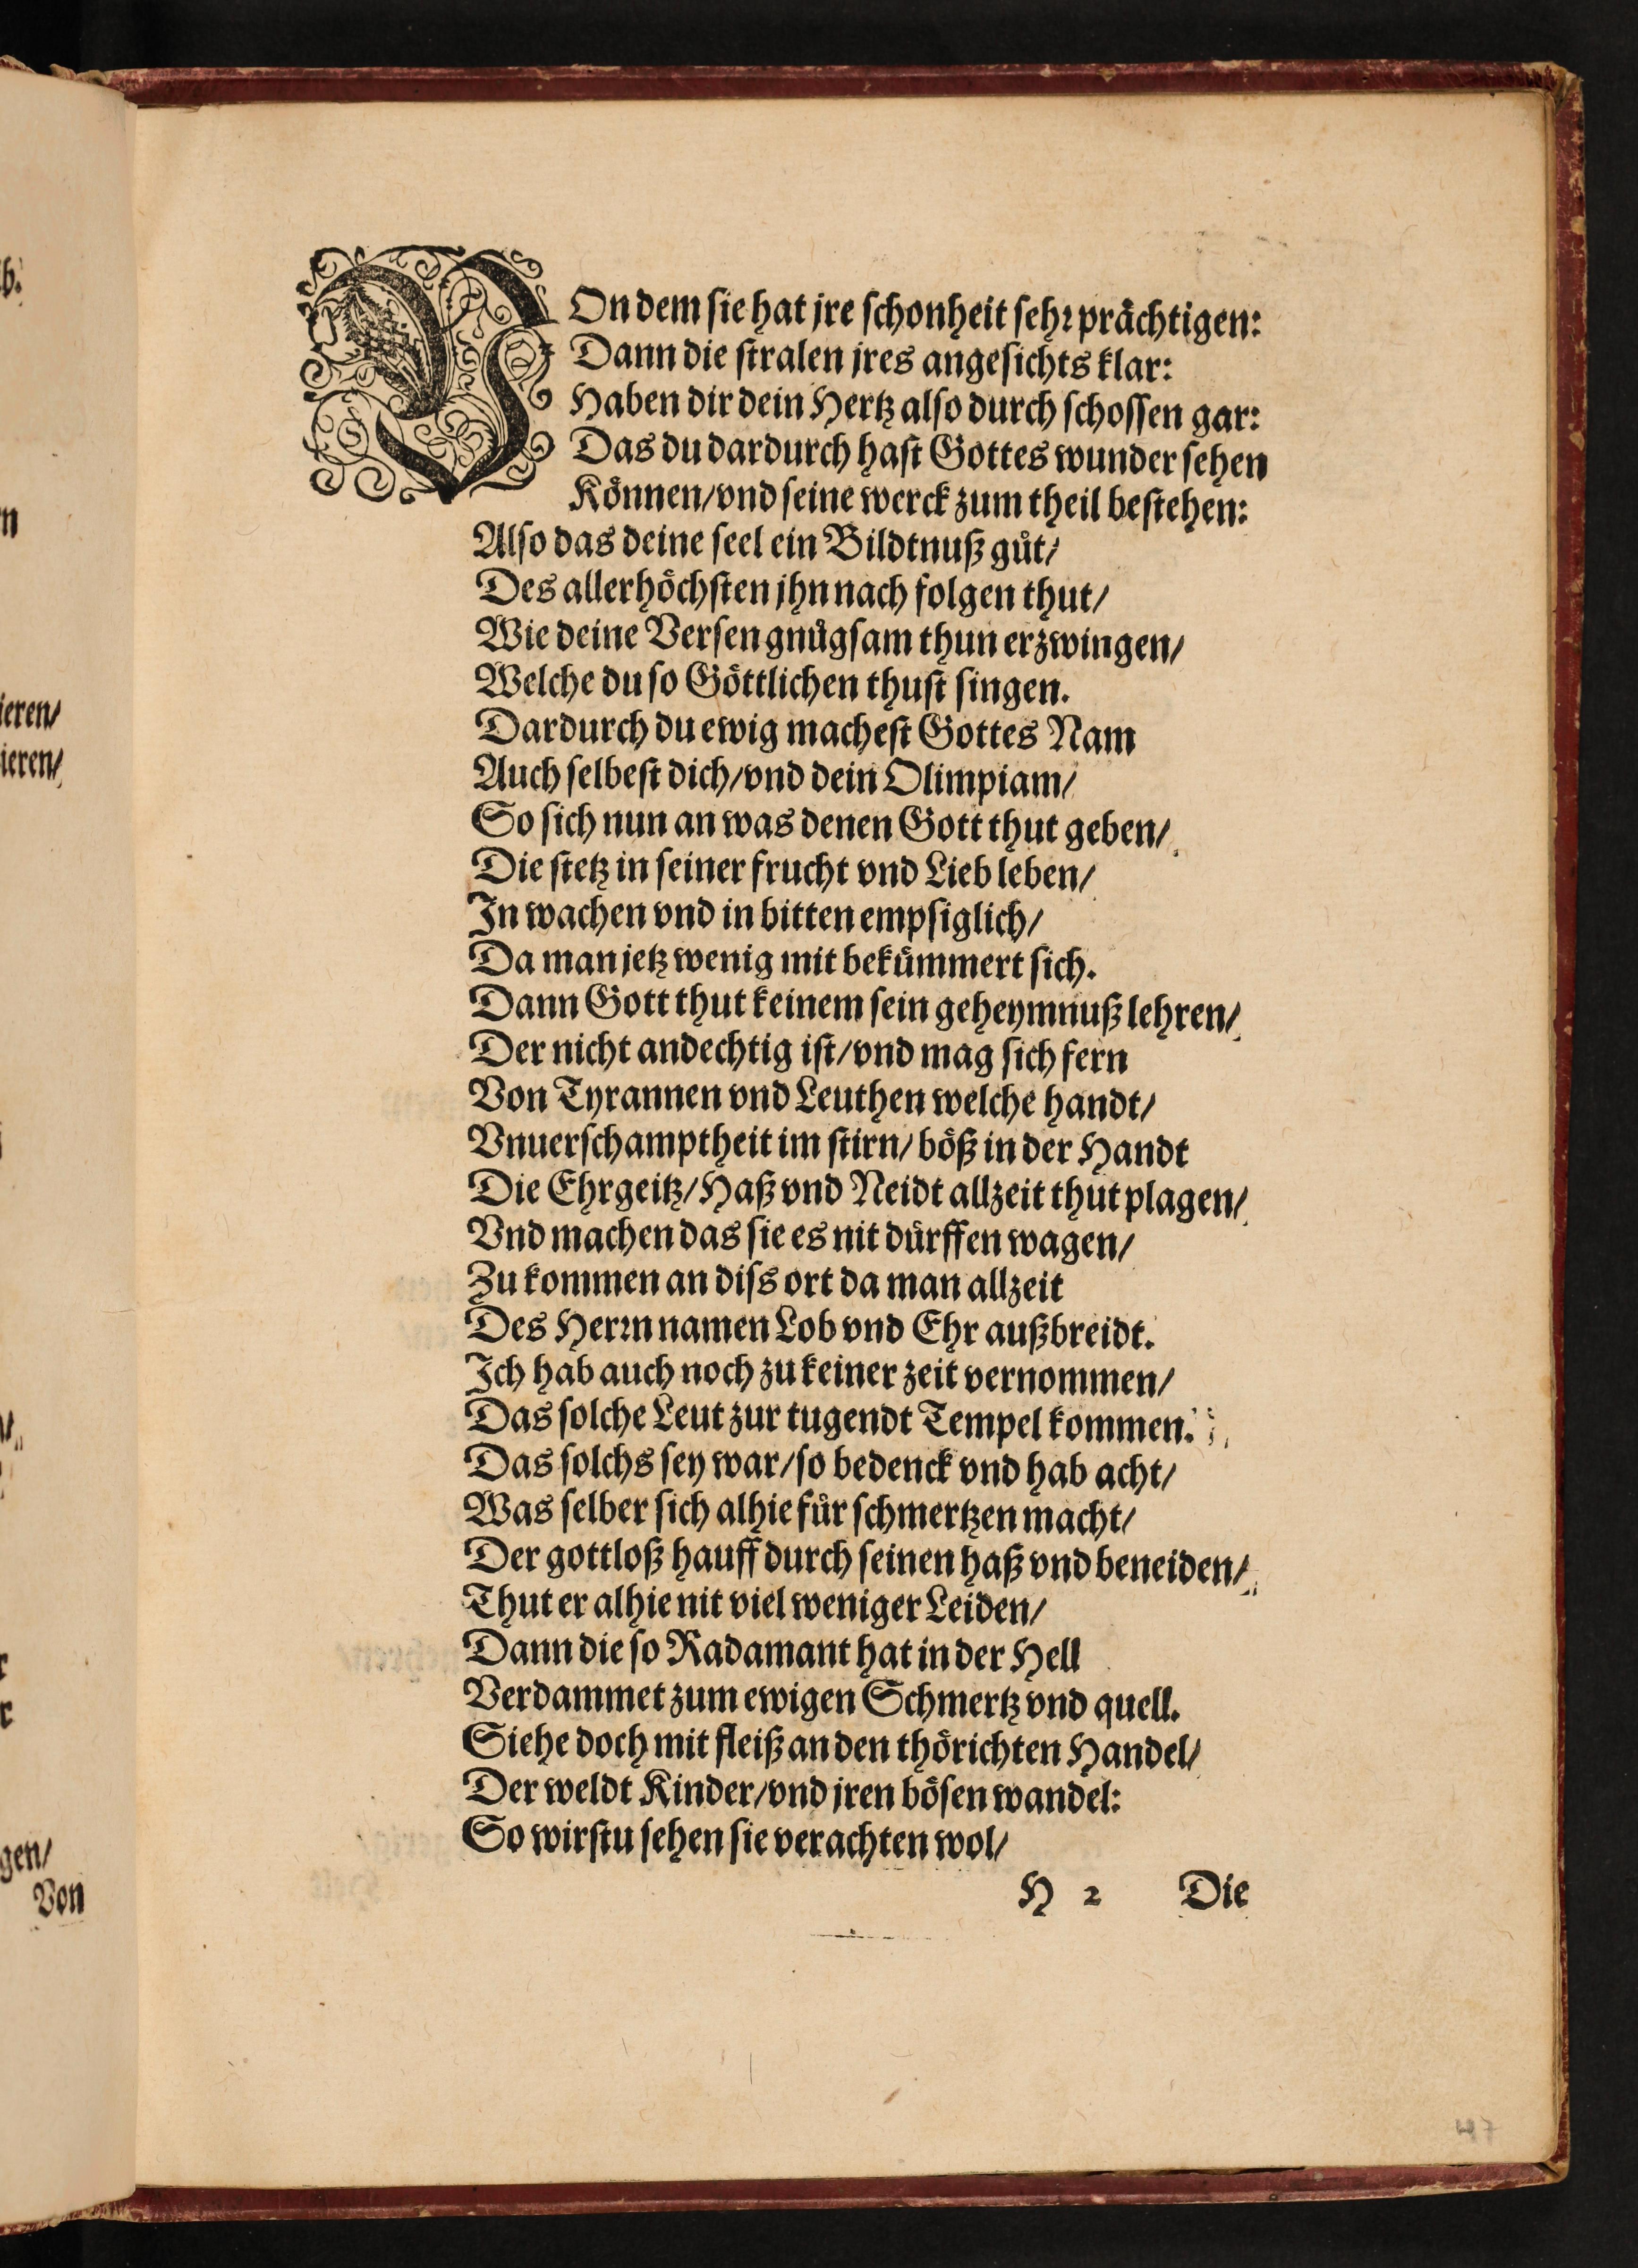 VOn dem sie hat jre schonheit sehr prächtigen:
Dann die stralen jres angesichts klar:
Haben dir dein Hertz also durch schossen gar:
Das du dardurch hast Gottes wunder sehen
Können/vnd seine werck zum theil bestehen:
Also das deine seel ein Bildtnuß gůt/
Des allerhöchsten jhn nach folgen thut/
Wie deine Versen gnůgsam thun erzwingen/
Welche du so Göttlichen thust singen.
Dardurch du ewig machest Gottes Nam
Auch selbest dich/vnd dein Olimpiam/
So sich nun an was denen Gott thut geben/
Die stetz in seiner frucht vnd Lieb leben/
In wachen vnd in bitten empsiglich/
Da man jetz wenig mit bekümmert sich.
Dann Gott thut keinem sein geheymnuß lehren/
Der nicht andechtig ist/vnd mag sich fern
Von Tyrannen vnd Leuthen welche handt/
Vnuerschamptheit im stirn/ böß in der Handt
Die Ehrgeitz/Haß vnd Neidt allzeit thut plagen/
Vnd machen das sie es nit dürffen wagen/
Zu kommen an diss ort da man allzeit
Des Herrn namen Lob vnd Ehr außbreidt.
Ich hab auch noch zu keiner zeit vernommen/
Das solche Leut zur tugendt Tempel kommen.
Das solchs sey war/so bedenck vnd hab acht/
Was selber sich alhie für schmertzen macht/
Der gottloß hauff durch seinen haß vnd beneiden/
Thut er alhie nit viel weniger Leiden/
Dann die so Radamant hat in der Hell
Verdammet zum ewigen Schmertz vnd quell.
Siehe doch mit fleiß an den thörichten Handel/
Der weldt Kinder/vnd jren bösen wandel:
So wirstu sehen sie verachten wol/
H 2 Die
b.
n
ieren/
ieren/
gen/
Von
47